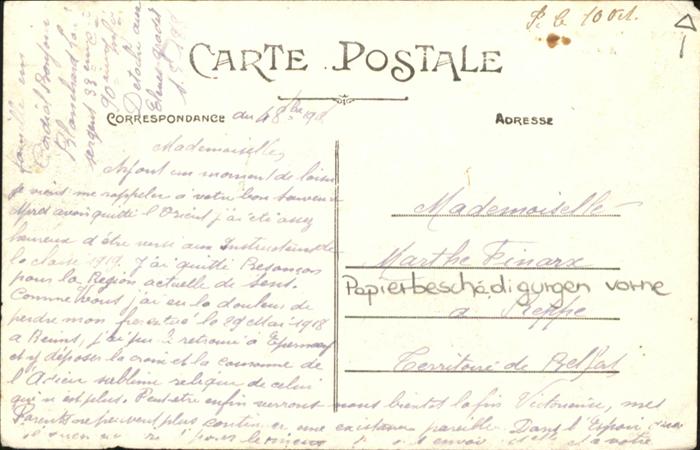 P. le 10 Oct.
CARTE POSTALE
CORRESPONDANCE du 4 8bre 1918
ADRESSE
Mademoiselle
Ayant un moment de loisir
je viens me rappeler à votre bon souvenir
Après avoir quitté l'Orient j'ai été assez
heureux d'être versé aux Instructeurs de
la classe 1919. J'ai quitté Besançon
pour la Region actuelle de Sens.
Comme vous j'ai eu la douleur de
perdre mon frere tué le 29 Mai 1918
a Reims, j'ai pu le retrouvé à Epernay
et y déposer la croix et la couronne de
l'Adieu sublime relique de celui
qui n'est plus. Peut-être enfin verrons nous bientot la fin Victorieuse, mes
Parents ne peuvent plus continuer une existance pareille. Dans l'Espoir
pour le mieux envoi à votre
famille un
Cordial Bonjour
Blanchard
sergent 33
90
Détaché aux
Eleves
S. P. 198
Mademoiselle
Marthe Finarx
Papierbeschädigungen vorne
a Reppe
Territoire de Belfort